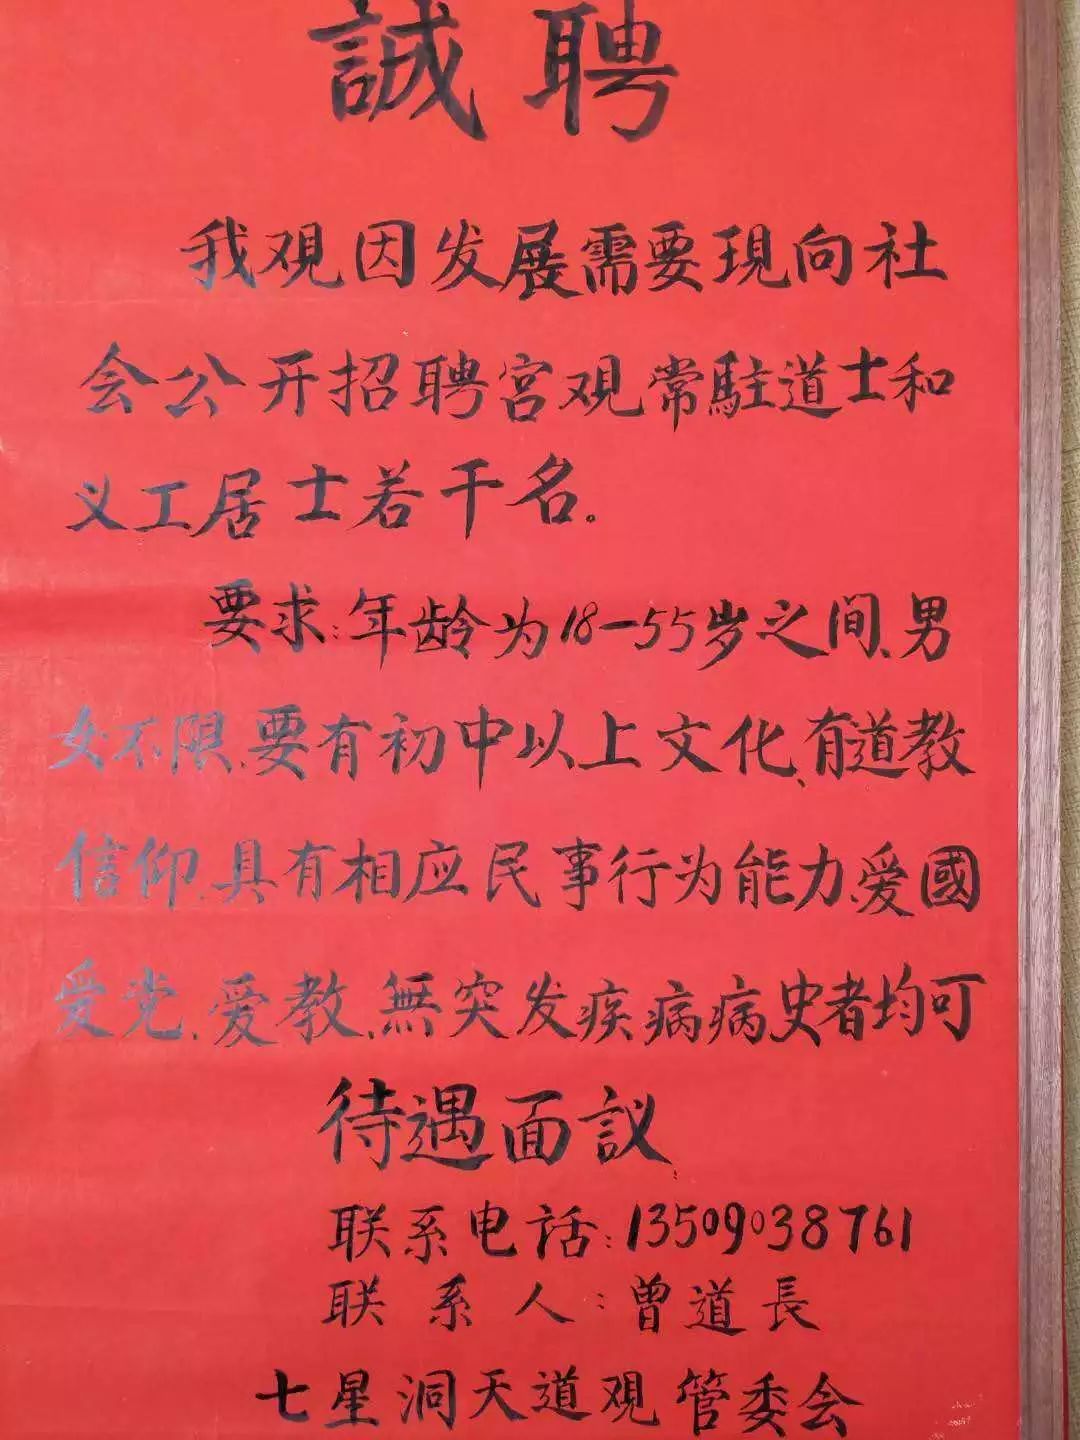 誠聘
我观因发展需要現向社
会公开招聘宫观常駐道士和
义工居士若干名。
要求:年龄为18-55岁之间、男
女不限、要有初中以上文化、有道教
信仰、具有相应民事行为能力、爱國
爱党、爱教、無突发疾病病史者均可
待遇面议
联系电话:13509038761
联系人:曾道長
七星洞天道观管委会